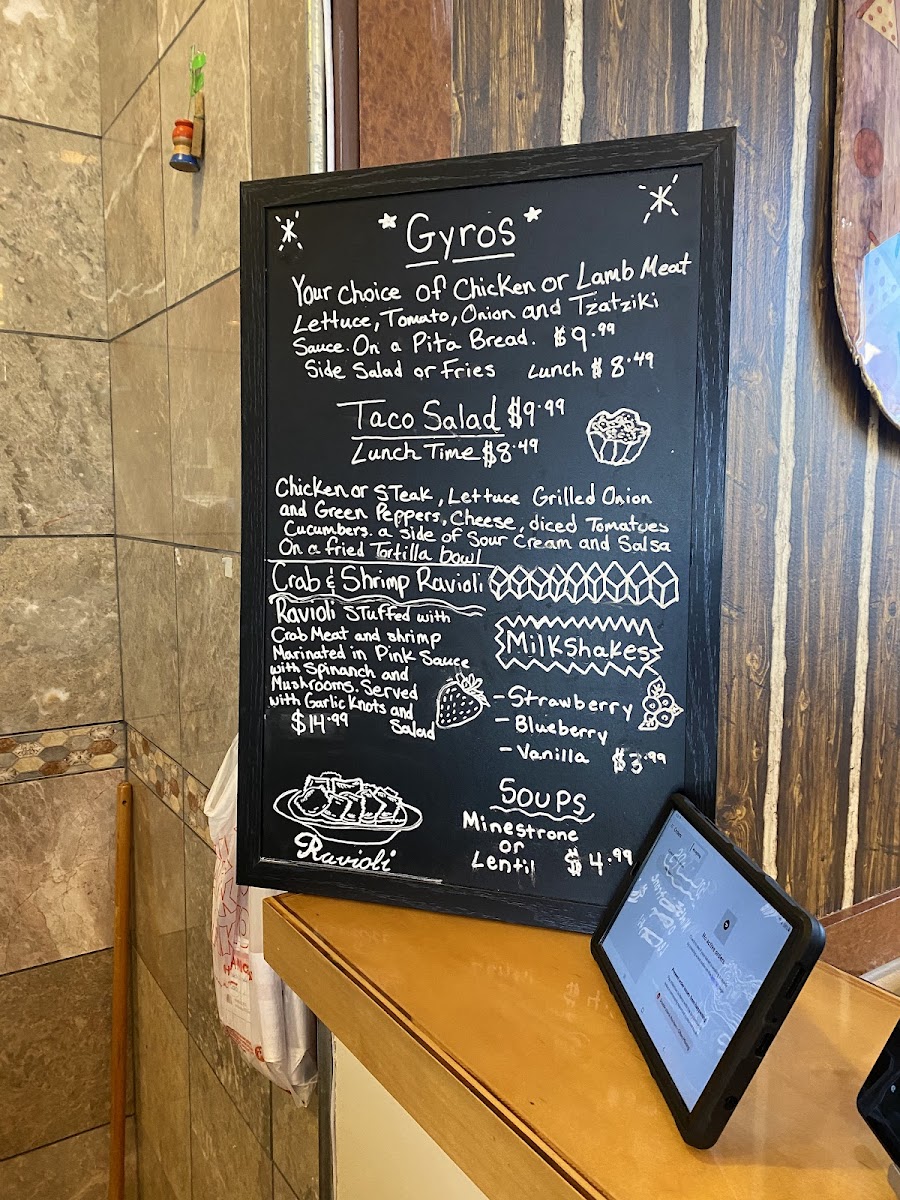 Gyros
Your Choice of Chicken or Lamb Meat
Lettuce, Tomato, Onion and Tzatziki
Sauce. On a Pita Bread. $9.99
Side Salad or Fries Lunch $8.49
Taco Salad $9.99
Lunch Time $8.49
Chicken or Steak, Lettuce Grilled Onion
and Green Peppers, Cheese, diced Tomatoes
Cucumbers. a side of Sour Cream and Salsa
On a fried Tortilla bowl
Crab & Shrimp Ravioli
Ravioli Stuffed with
Crab Meat and shrimp
Marinated in Pink Sauce
with Spinanch and
Mushrooms. Served
with Garlic Knots and
$14.99 Salad
Ravioli
Milkshakes
- Strawberry
- Blueberry
- Vanilla $3.99
Soups
Minestrone
or
Lentil $4.99
No active orders